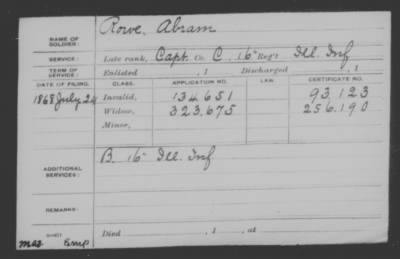 NAME OF SOLDIER: Rowe, Abram
SERVICE: Late rank, Capt. Co. C, 16" Reg't Ill. Inf
TERM OF SERVICE: Enlisted , 1 Discharged , 1
DATE OF FILING. CLASS. APPLICATION NO. LAW. CERTIFICATE NO.
1868 July 24 Invalid, 134,651 93,123
Widow, 323,675 256,190
Minor,
ADDITIONAL SERVICES: B. 16" Ill. Inf
REMARKS:
Died , 1 , at